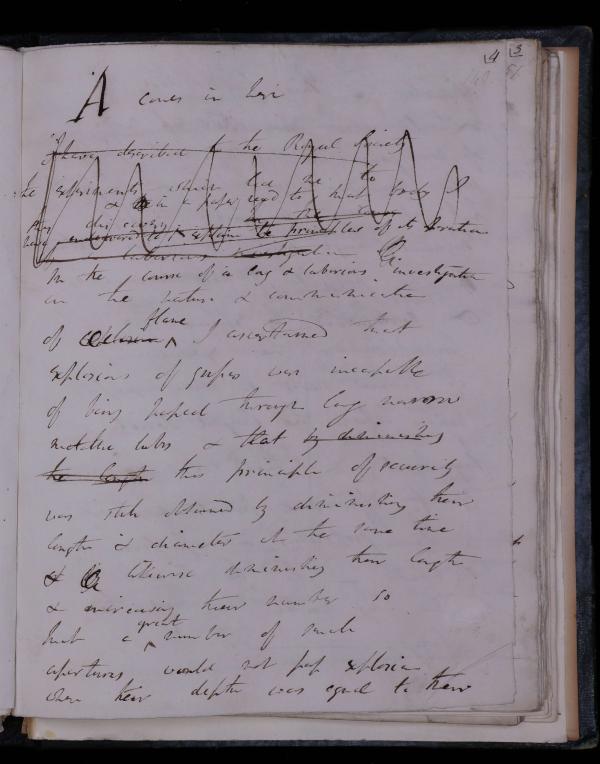 4 3
A comes in here
I have described to the Royal Society
the experiments which led me to
& in a paper read to that body
this discovery
have endeavoured to explain the principles of its operation
laborious investigation
In the course of a long & laborious investigation
on the nature & communication
of flame I ascertained that
explosions of gases were incapable
of being passed through long narrow
metallic tubes & that by diminishing
the length this principle of security
was still obtained by diminishing their
length & diameter at the same time
& likewise diminishing their length
& increasing their number so
that a great number of such
apertures would not pass explosion
when their depth was equal to their